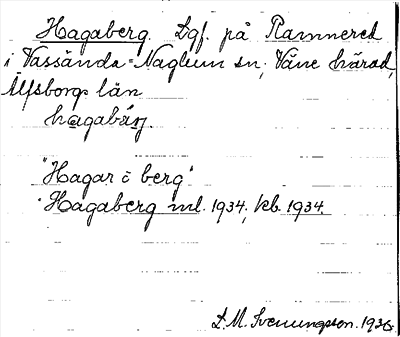 Hagaberg. Lgf. på Ramnered
i Vassända-Naglum sn, Väne härad,
Älfsborgs län
hagabärj.
"Hagar o berg"
Hagaberg ml. 1934, kb. 1934
D. M. Svenungsson. 1936.